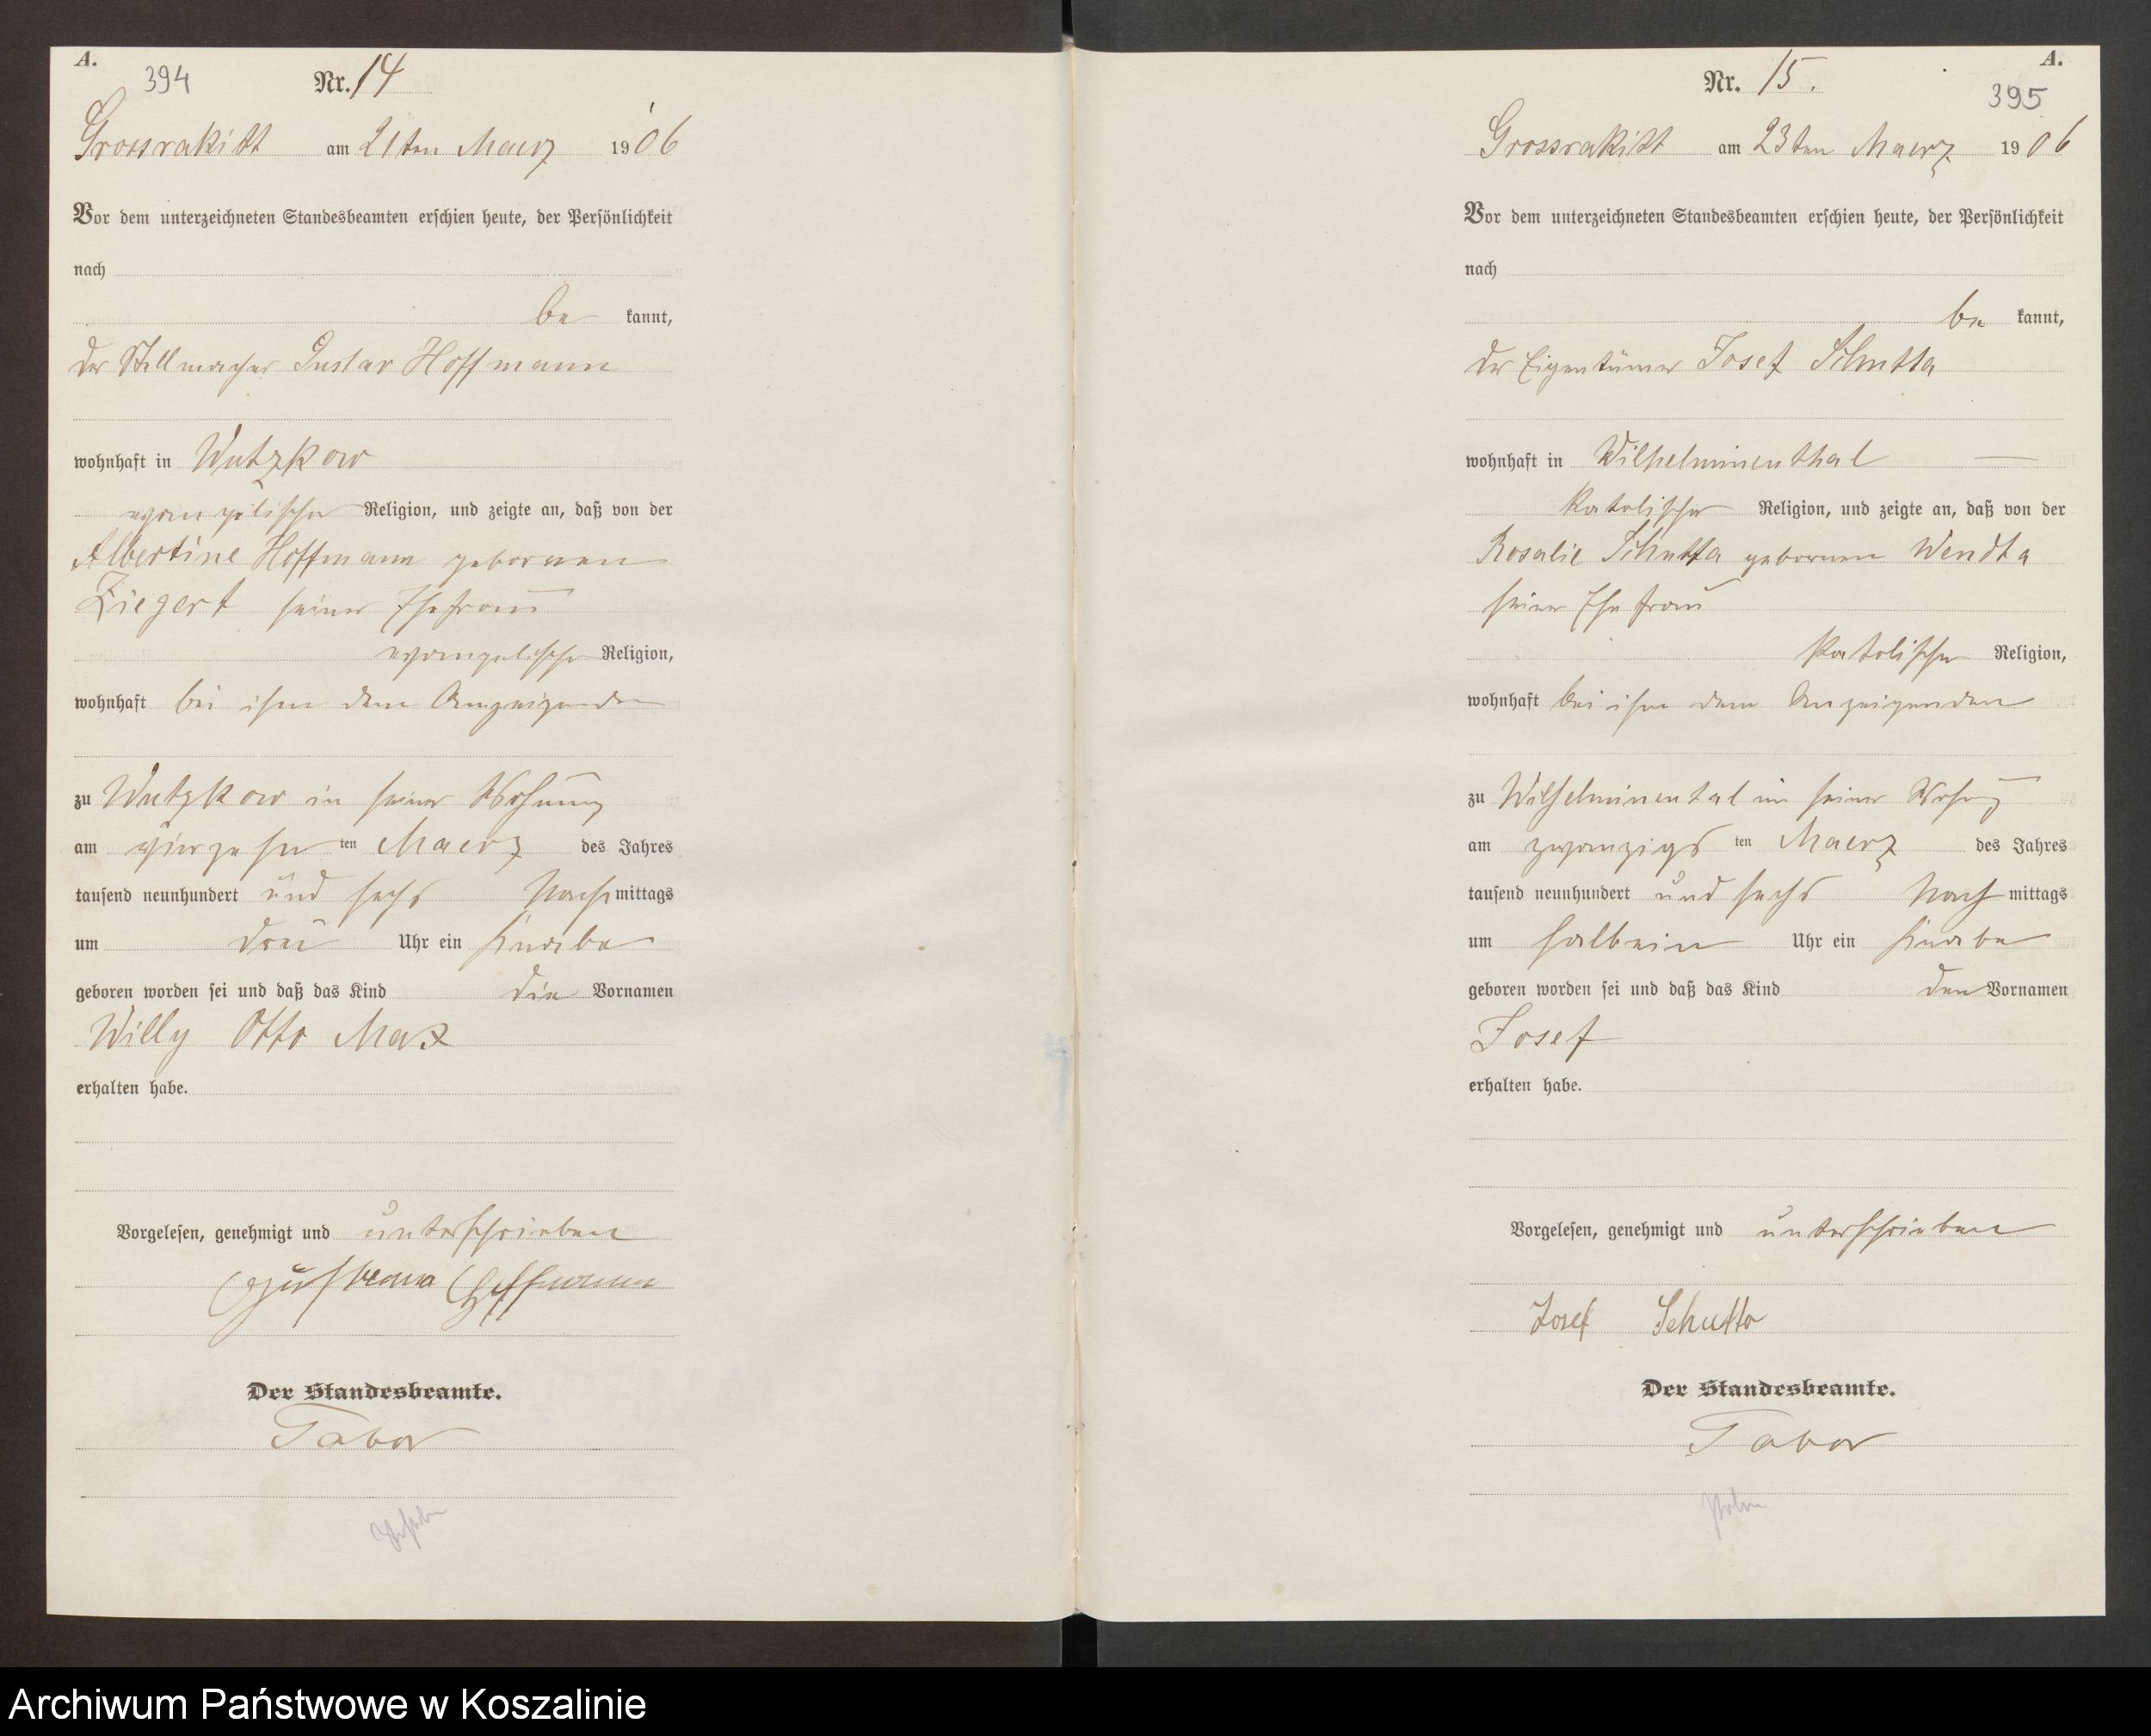 A.
394
Nr. 14
Grossrakitt am 21ten Maerz 1906
Vor dem unterzeichneten Standesbeamten erschien heute, der Persönlichkeit
nach
be kannt,
der Stellmacher Gustav Hoffmann
wohnhaft in Wutzkow
evangelischer Religion, und zeigte an, daß von der
Albertine Hoffmann gebornen
Ziegert seiner Ehefrau
evangelischer Religion,
wohnhaft bei ihm dem Anzeigenden
zu Wutzkow in seiner Wohnung
am vierzehn ten Maerz des Jahres
tausend neunhundert und sechs Nach mittags
um drei Uhr ein Knabe
geboren worden sei und daß das Kind die Vornamen
Willy Otto Max
erhalten habe.
Vorgelesen, genehmigt und unterschrieben
Gustav Hoffmann
Der Standesbeamte.
Tabor
A.
Nr. 15.
395
Grossrakitt am 23ten Maerz 1906
Vor dem unterzeichneten Standesbeamten erschien heute, der Persönlichkeit
nach
be kannt,
der Eigentümer Josef Schutta
wohnhaft in Wilhelminenthal
katolischer Religion, und zeigte an, daß von der
Rosalie Schutta gebornen Wendta
seiner Ehefrau
katolischer Religion,
wohnhaft bei ihm dem Anzeigenden
zu Wilhelminental in seiner Wohnung
am zwanzigs ten Maerz des Jahres
tausend neunhundert und sechs Nach mittags
um halbein Uhr ein Knabe
geboren worden sei und daß das Kind den Vornamen
Josef
erhalten habe.
Vorgelesen, genehmigt und unterschrieben
Josef Schutta
Der Standesbeamte.
Tabor
Archiwum Państwowe w Koszalinie